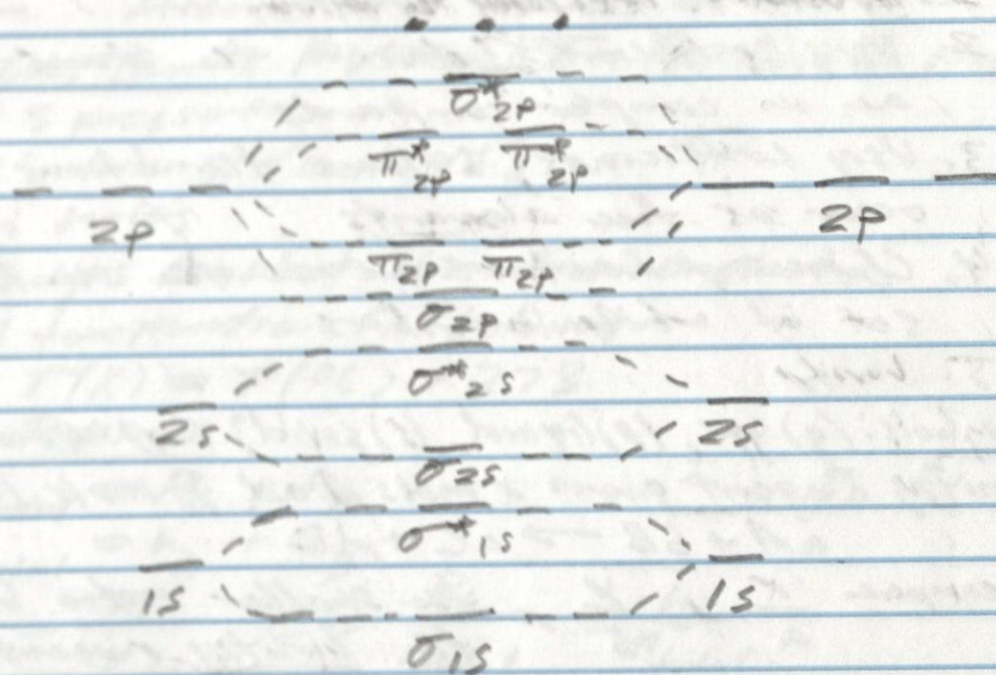 σ*2p
π*2p π*2p
2p 2p
π2p π2p
σ2p
σ*2s
2s 2s
σ2s
σ*1s
1s 1s
σ1s